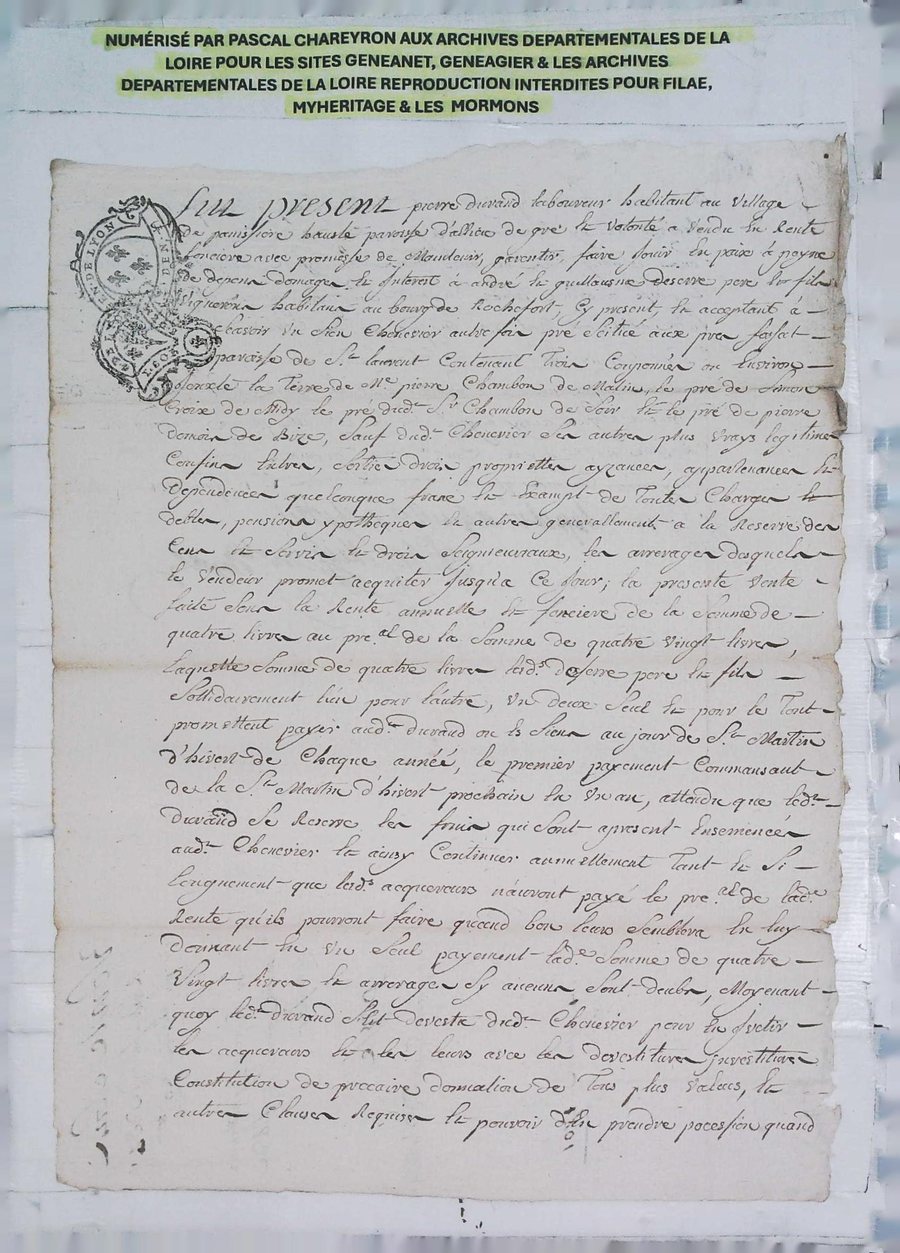 NUMÉRISÉ PAR PASCAL CHAREYRON AUX ARCHIVES DEPARTEMENTALES DE LA
LOIRE POUR LES SITES GENEANET, GENEAGIER & LES ARCHIVES
DEPARTEMENTALES DE LA LOIRE REPRODUCTION INTERDITES POUR FILAE,
MYHERITAGE & LES MORMONS
present pierre durand laboureur habitant au village
de panissiere haute paroisse de gré et volonté a vendu en rente
fonciere avec promesse de Maintenir, garentir, faire Jouir en paix à peyne
de depens domage et Interest à andré et guillaume deserre pere et fils
vignerons habitans au bourg de Rochefort, Cy present, et acceptant à
scavoir un sien Chenevier autrefois pré scitué aux pres
paroisse de St. laurent Contenant trois Couponées ou Environ
la terre de Me. pierre Chambon de Matin, le pré de Simon
Croix de Midy le pré dudt. Sr. Chambon de Soir et le pré de pierre
de Bize, Sauf dudt. Chenevier ses autres plus vrays legitimes
Confins entrés, sorties droits proprietés ayzances, appartenances et
Dependences quelconque franc et Exampt de toutes Charges et
debtes, pensions ypotheques et autres generallement à la Reserve des
Cens et Servis et droits Seigneuriaux, les arrerages desquels
le Vendeur promet acquiter Jusqu'a Ce Jour; la presente vente
faite Sous la Rente annuelle et fonciere de la Somme de
quatre livres au preal. de la Somme de quatre vingt livres,
laquelle Somme de quatre livres lesds. deserre pere et fils
Sollidairement l'un pour l'autre, un deux Seul et pour le tout
promettent payer audt. durand ou es Siens au jour de St. Martin
d'hivert de Chaque année, le premier payement Commansant
de la St. Martin d'hivert prochain en un an, attendu que ledt.
durand Se Reserve les fruis qui Sont apresent Ensemencés
audt. Chenevier et ainsy Continuer annuellement tant et Si
longuement que lesds. acquereurs n'auront payé le preal. de lade.
Rente qu'ils pourront faire quand bon leurs Semblera en luy
donnant en un Seul payement lade. Somme de quatre
Vingt livres et arrerages Sy aucuns Sont deubs, Moyenant
quoy ledt. durand S'est devestu dudt. Chenevier pour en Jnvetir
les acquereurs et les leurs avec les devestitures jnvestitures
Constitution de precaire donnation de tous plus valeus, et
autres Clauses Requises et pouvoir d'En prendre pocession quand